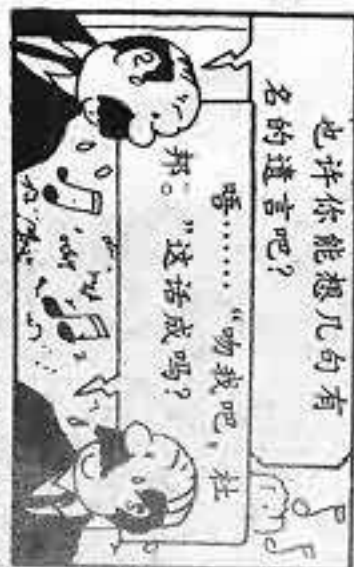 也许你能想几句有
名的遗言吧?
唔……“吻我吧,杜
邦。”这话成吗?